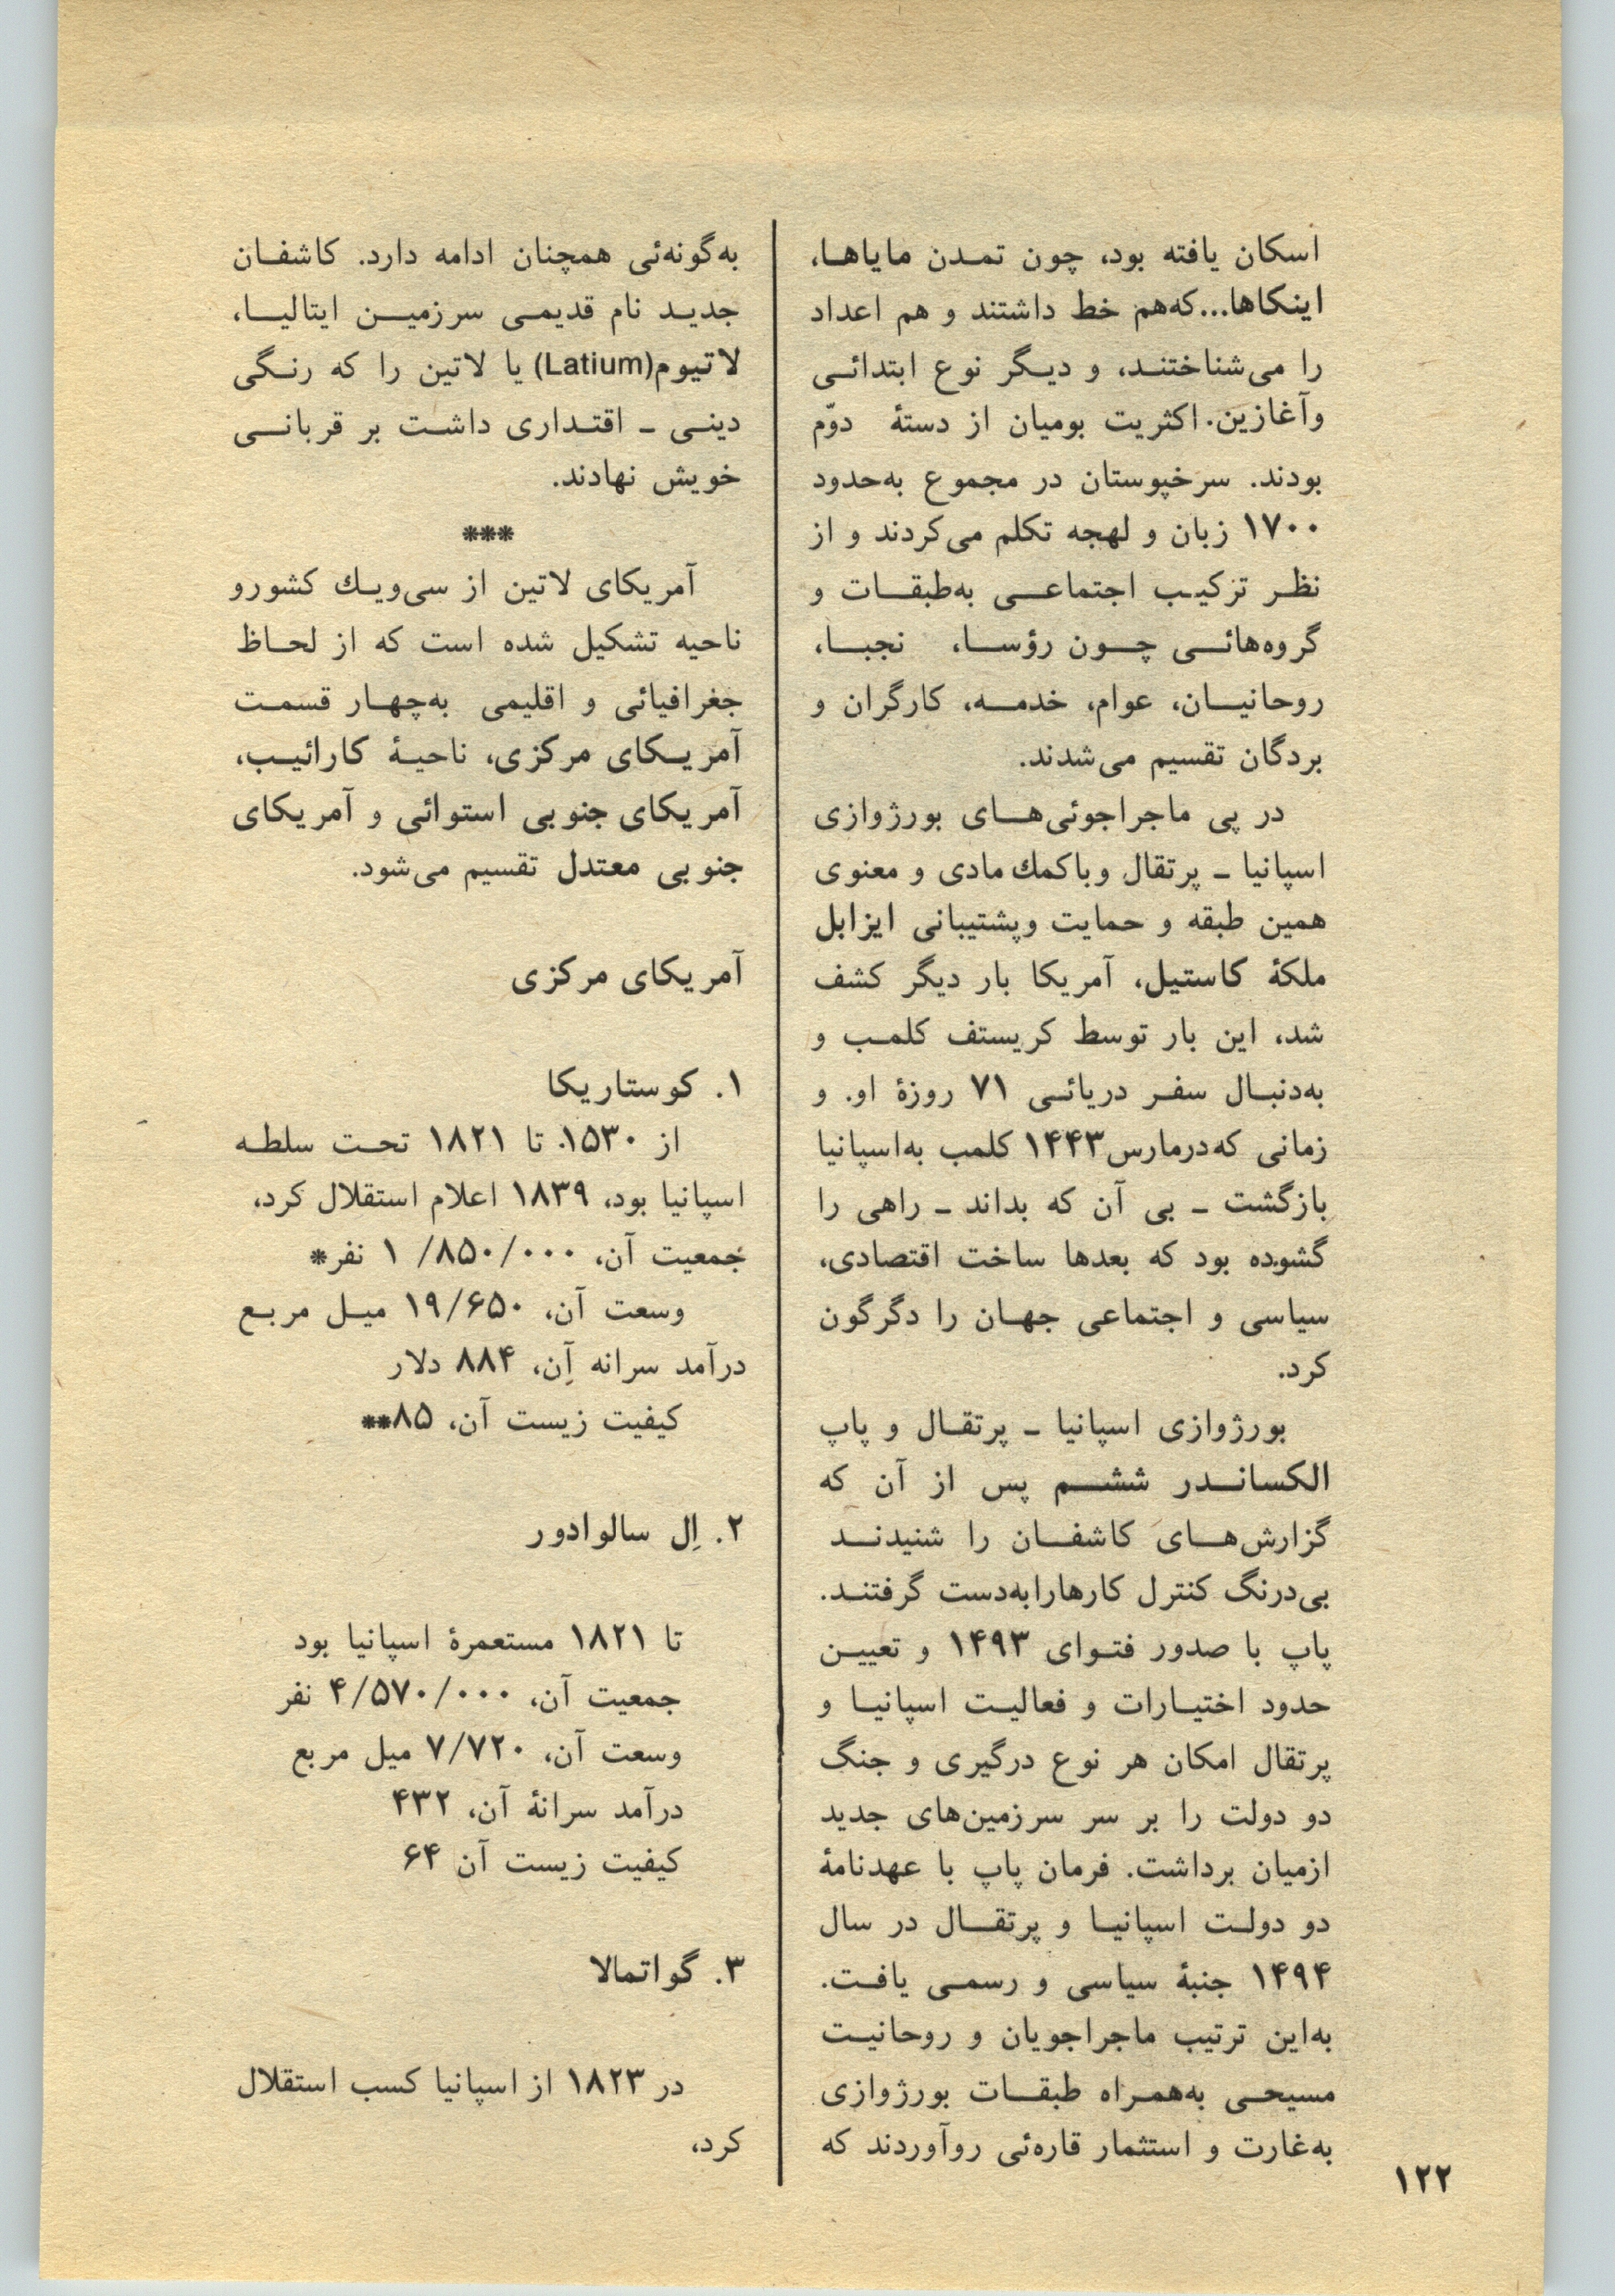 اسکان یافته بود، چون تمدن مایاها،
اینکاها...که‌هم خط داشتند و هم اعداد
را می‌شناختند، و دیگر نوع ابتدائی
وآغازین. اکثریت بومیان از دستهٔ دوّم
بودند. سرخپوستان در مجموع به‌حدود
۱۷۰۰ زبان و لهجه تکلم می‌کردند و از
نظر ترکیب اجتماعی به‌طبقات و
گروه‌هائی چون رؤسا، نجبا،
روحانیان، عوام، خدمه، کارگران و
بردگان تقسیم می‌شدند.
در پی ماجراجوئی‌های بورژوازی
اسپانیا ـ پرتقال وباکمك مادی و معنوی
همین طبقه و حمایت وپشتیبانی ایزابل
ملکهٔ کاستیل، آمریکا بار دیگر کشف
شد، این بار توسط کریستف کلمب و
به‌دنبال سفر دریائی ۷۱ روزهٔ او. و
زمانی که‌درمارس۱۴۴۳ کلمب به‌اسپانیا
بازگشت ـ بی آن که بداند ـ راهی را
گشوده بود که بعدها ساخت اقتصادی،
سیاسی و اجتماعی جهان را دگرگون
کرد.
بورژوازی اسپانیا ـ پرتقال و پاپ
الکساندر ششم پس از آن که
گزارش‌های کاشفان را شنیدند
بی‌درنگ کنترل کارهارابه‌دست گرفتند.
پاپ با صدور فتوای ۱۴۹۳ و تعیین
حدود اختیارات و فعالیت اسپانیا و
پرتقال امکان هر نوع درگیری و جنگ
دو دولت را بر سر سرزمین‌های جدید
ازمیان برداشت. فرمان پاپ با عهدنامهٔ
دو دولت اسپانیا و پرتقال در سال
۱۴۹۴ جنبهٔ سیاسی و رسمی یافت.
به‌این ترتیب ماجراجویان و روحانیت
مسیحی به‌همراه طبقات بورژوازی
به‌غارت و استثمار قاره‌ئی روآوردند که
به‌گونه‌ئی همچنان ادامه دارد. کاشفان
جدید نام قدیمی سرزمین ایتالیا،
لاتیوم(Latium) یا لاتین را که رنگی
دینی ـ اقتداری داشت بر قربانی
خویش نهادند.
***
آمریکای لاتین از سی‌ویك کشورو
ناحیه تشکیل شده است که از لحاظ
جغرافیائی و اقلیمی به‌چهار قسمت
آمریکای مرکزی، ناحیهٔ کارائیب،
آمریکای جنوبی استوائی و آمریکای
جنوبی معتدل تقسیم می‌شود.
آمریکای مرکزی
۱. کوستاریکا
از ۱۵۳۰. تا ۱۸۲۱ تحت سلطه
اسپانیا بود، ۱۸۳۹ اعلام استقلال کرد،
جمعیت آن، ۱/۸۵۰/۰۰۰ نفر*
وسعت آن، ۱۹/۶۵۰ میل مربع
درآمد سرانه آن، ۸۸۴ دلار
کیفیت زیست آن، ۸۵**
۲. اِل سالوادور
تا ۱۸۲۱ مستعمرهٔ اسپانیا بود
جمعیت آن، ۴/۵۷۰/۰۰۰ نفر
وسعت آن، ۷/۷۲۰ میل مربع
درآمد سرانهٔ آن، ۴۳۲
کیفیت زیست آن ۶۴
۳. گواتمالا
در ۱۸۲۳ از اسپانیا کسب استقلال
کرد،
۱۲۲